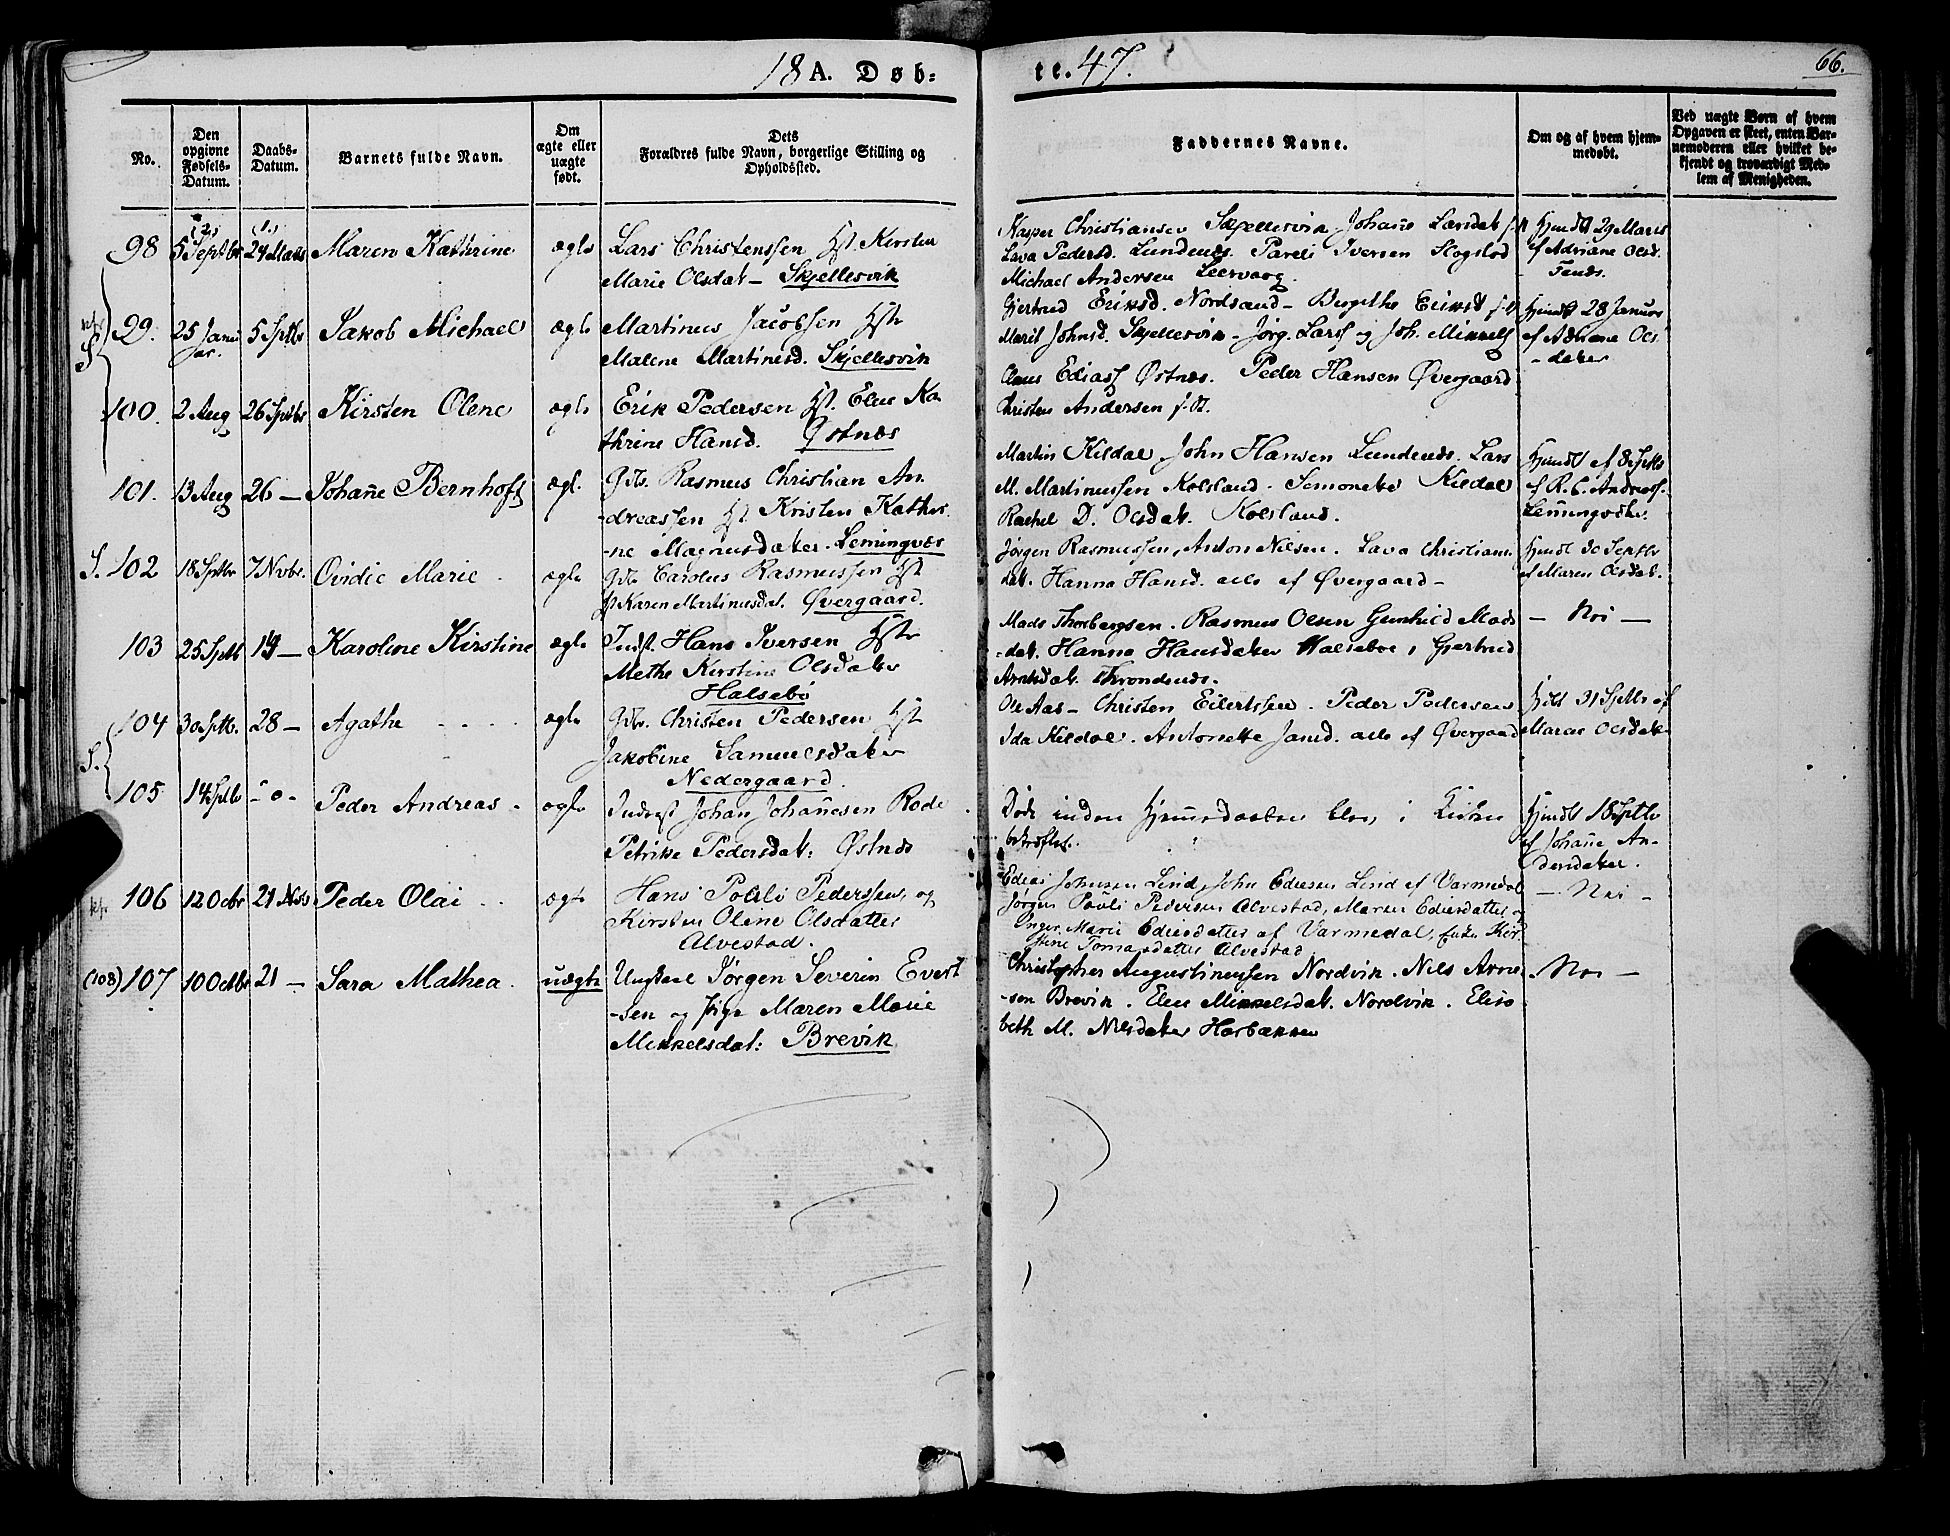 18 A. Døb-
te. 47.
66.
No.
Den opgivne Fødsels-Datum.
Daabs-Datum.
Barnets fulde Navn.
Om ægte eller uægte født.
Dets Forældres fulde Navn, borgerlige Stilling og Opholdssted.
Faddernes Navne.
Om og af hvem hjem-medøbt.
Ved uægte Børn af hvem Opgaven er skeet, enten Bar-nemoderen eller hvilket be-kjendt og troværdigt Med-lem af Menigheden.
98 5 Septbr (2) 24 Marts (1.) Maren Kathrine ægte Lars Christenssen Hst Kirsten
Marie Olsdat - Skjellesvik
Kasper Christiansen Skjellesvik Johane Larsdat
Lava Pedersd. Lundenes. Pareli Iversen Slogstad
Michael Andersen Leervaag
Hjemdt 29 Marts
af Adriane Olsd.
99. 25 Janu ar. 5 Septbr Jakob Michael ægte Martinus Jacobsen Hstr
Malene Martinesd. Skjellesvik
Gjertrud Eriksd. Nordsand - Bergithe Eriksd
Marit Johnsd. Skjellesvik - Jørg. Larss og Joh. Mikkels
Hjemdt 28 Januar
af Adriane Ols
- datter
S
100. 2 Aug 26 Septbr Kirsten Olene ægte Erik Pedersen Hst. Elen Ka
thrine Hansd. Østnæs
Claus Ediass Østnæs. Peder Hansen Øvergaard
Christen Andersen
101. 13 Aug 26 — Johane Bernhoft ægt. Gdb. Rasmus Christian An
-dreassen Hst Kristen Kathri
-ne Magnusdatter. Lemingvær
Martin Kildal John Hansen Lundenes. Lars
M. Martinussen Kolsland. Semoneke Kildal
Rachel D. Olsdat. Kolsland.
Hjemdt af 8 Septbr
af R. C. Andreass.
S. 102 18 Septbr 7 Novbr. Ovidie Marie - ægte Gdb. Carolus Rasmussen Hst
Karen Martinusdat. Øvergaard.
Jørgen Rasmussen, Anton Nilsen. Lava Christians
dat. Hanna Hansd. alle af Øvergaard -
Hjemdt 30 Septbr
af Maren Olsdat.
103 25 Septb 14 — Karoline Kirstine ægte Indst. Hans Iversen Hstr
Methe Kirstine Olsdatter
Halsebø
Mads Thorbergsen. Rasmus Olsen Gunhild Mads
-dat. Hanna Hansdatter Halsebøe, Gjertrud
Arntsdat. Throndenes.
— Nei —
104 30 Septb. 28 — Agathe ægte Gdb. Christen Pedersen Hst
Jakobine Samuelsdatter
Nedergaard.
Ole Aas - Christen Eilertssen. Peder Pedersen
Ida Kildal. Antonette Jansd. alle af Øvergaard
Hjdt 31 Septbr af
Maren Olsdat
S.
105 14 Septb - 0 - Peder Andreas - ægte Inderst Johan Johanesen Rode
Petrike Pedersdat: Østnæs
Døde inden Hjemmedaaben blev i Kirken
bekræftet.
Hjemdt 18 Septb
af Johane An-
dersdatter.
106 12 Octbr 21 Nov Peder Olai ægte Hans Povli Pederssen, og
Kirsten Olene Olsdatter
Alvestad.
Edias Johnsen Lind, John Ediesen Lind af Varmedal
Jørgen Pauli Pedersen Alvestad, Maren Ediesdatter og
Inger Marie Ediesdatter af Varmedal, Enke Kir
stine Tomasdatter Alvestad
— Nei -
(108) 107 10 Octbr 21 — Sara Mathea. uægte Ungkarl Jørgen Severin Evert
-sen og Pige Maren Marie
Mikkelsdat: Brevik
Christopher Augustinussen Nordvik. Nils Arne
-sen Brevik. Elen Mikkelsdat. Nordvik. Elisa
beth M. Nilsdatter Harbakken
- Nei —